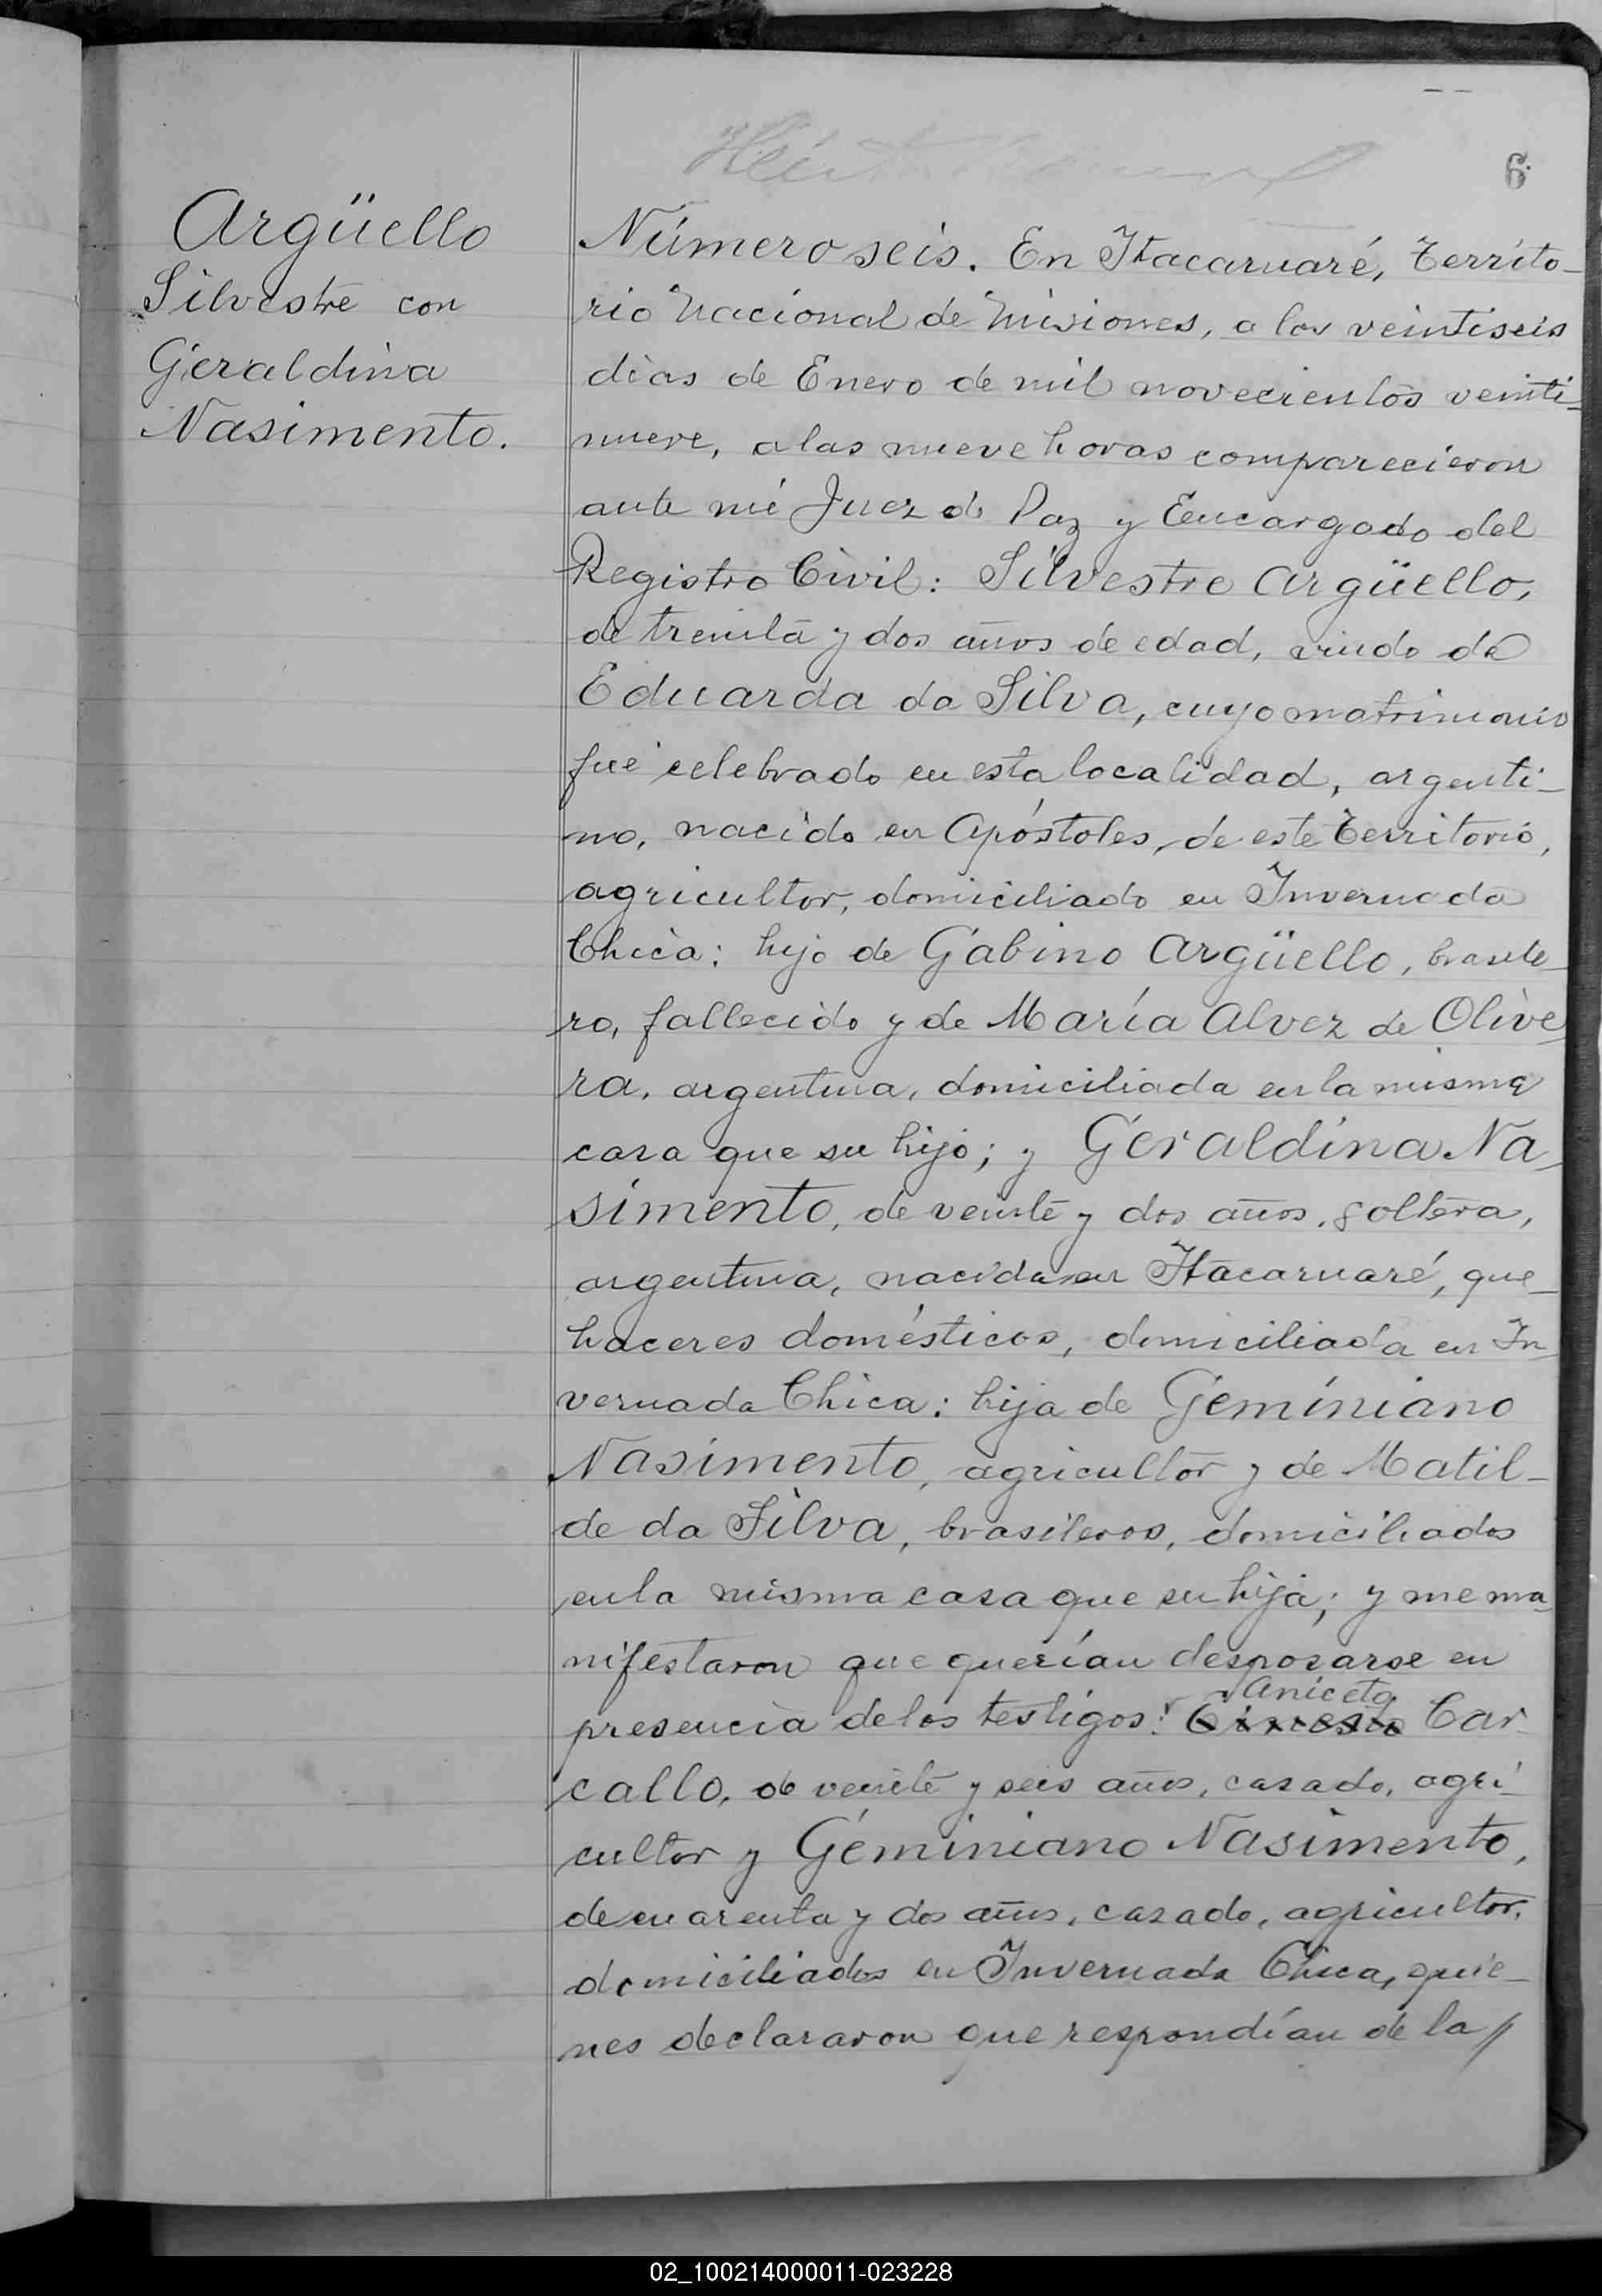 6
Argüello
Silvestre con
Geraldina
Nasimento.
Número seis. En Itacaruaré, Territo-
rio Nacional de Misiones, a los veintiseis
dias de Enero de mil novecientos veinti-
nueve, a las nueve horas comparecieron
ante mi Juez de Paz y Encargado del
Registro Civil: Silvestre Argüello,
de treinta y dos años de edad, viudo de
Eduarda da Silva, cuyo matrimonio
fué celebrado en esta localidad, argenti-
no, nacido en Apóstoles, de este Territorio,
agricultor, domiciliado en Invernada
Chica: hijo de Gabino Argüello, brasile-
ro, fallecido y de María Alvez de Olive-
ra, argentina, domiciliada en la misma
casa que su hijo; y Geraldina Na-
simento, de veinte y dos años, soltera,
argentina, nacida en Itacaruaré, que-
haceres domésticos, domiciliada en In-
vernada Chica: hija de Geminiano
Nasimento, agricultor y de Matil-
de da Silva, brasileros, domiciliados
en la misma casa que su hija; y me ma-
nifestaron que querían desposarse en
Aniceto
presencia de los testigos: Car-
callo, de veinte y seis años, casado, agri-
cultor y Geminiano Nasimento,
de cuarenta y dos años, casado, agricultor,
domiciliados en Invernada Chica, quie-
nes declararon que respondían de la /
02_100214000011-023228